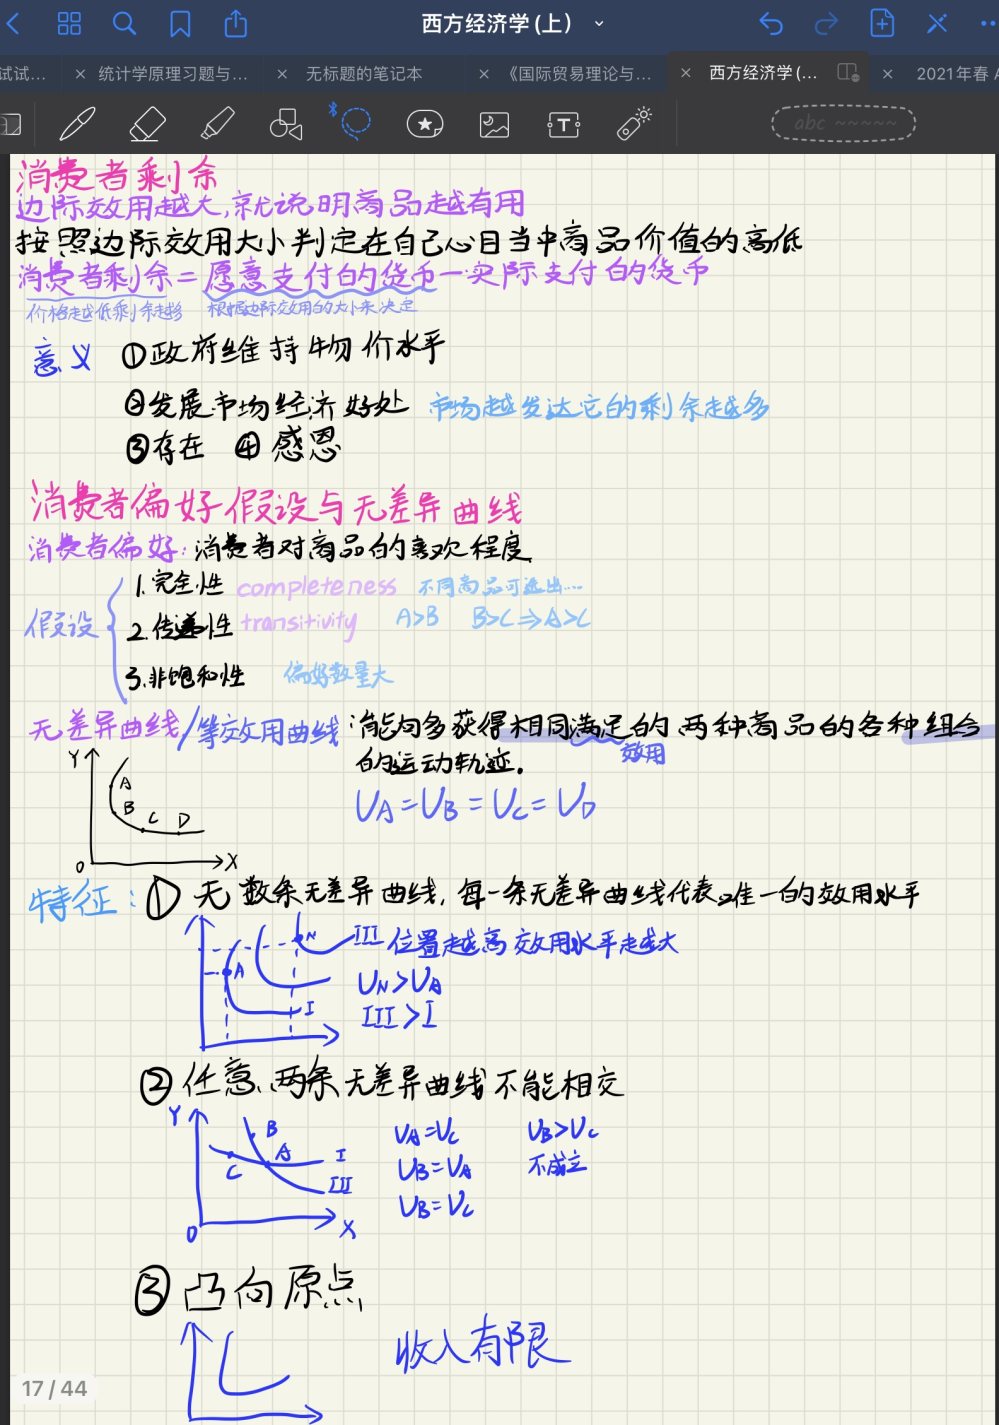 西方经济学(上)
试试...
× 统计学原理习题与...
× 无标题的笔记本
× 《国际贸易理论与...
× 西方经济学(...
× 2021年春 A
abc ~~~~~
消费者剩余
边际效用越大,就说明商品越有用
按照边际效用大小判定在自己心目当中商品价值的高低
消费者剩余=愿意支付的货币一实际支付的货币
价格越低剩余越多 根据边际效用的大小来决定
意义 ①政府维持物价水平
②发展市场经济好处 市场越发达它的剩余越多
③存在 ④感恩
消费者偏好假设与无差异曲线
消费者偏好:消费者对商品的喜欢程度
1.完全性 completeness 不同商品可选出...
假设 2.传递性 transitivity A>B B>C⇒A>C
3.非饱和性 偏好数量大
无差异曲线/等效用曲线:能句多获得相同满足的两种商品的各种组合
效用
的运动轨迹.
Y A B C D O X
UA=UB=UC=UD
特征:① 无数条无差异曲线,每一条无差异曲线代表唯一的效用水平
N III 位置越高效用水平越大
A UN>UA
I III>I
② 任意两条无差异曲线不能相交
Y B UA=UC UB>UC
C A I UB=UA 不成立
III UB=UC
O X
③ 凸向原点
收入有限
17/44